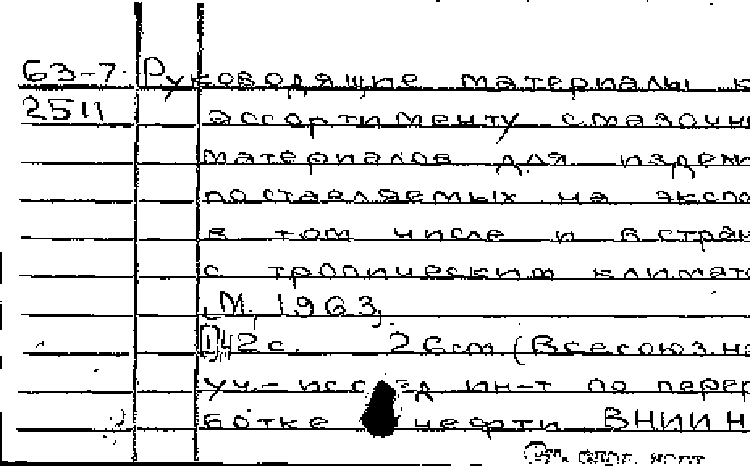 63-7 Руководящие материалы к
2511 ассортименту смазочн
материалов для издели
поставляемых на экспо
в том числе и в стран
с тропическим климато
М, 1963,
142 с. 26 см (Всесоюз. на
уч.-иссл ин-т по перер
ботке нефти ВНИИ Н